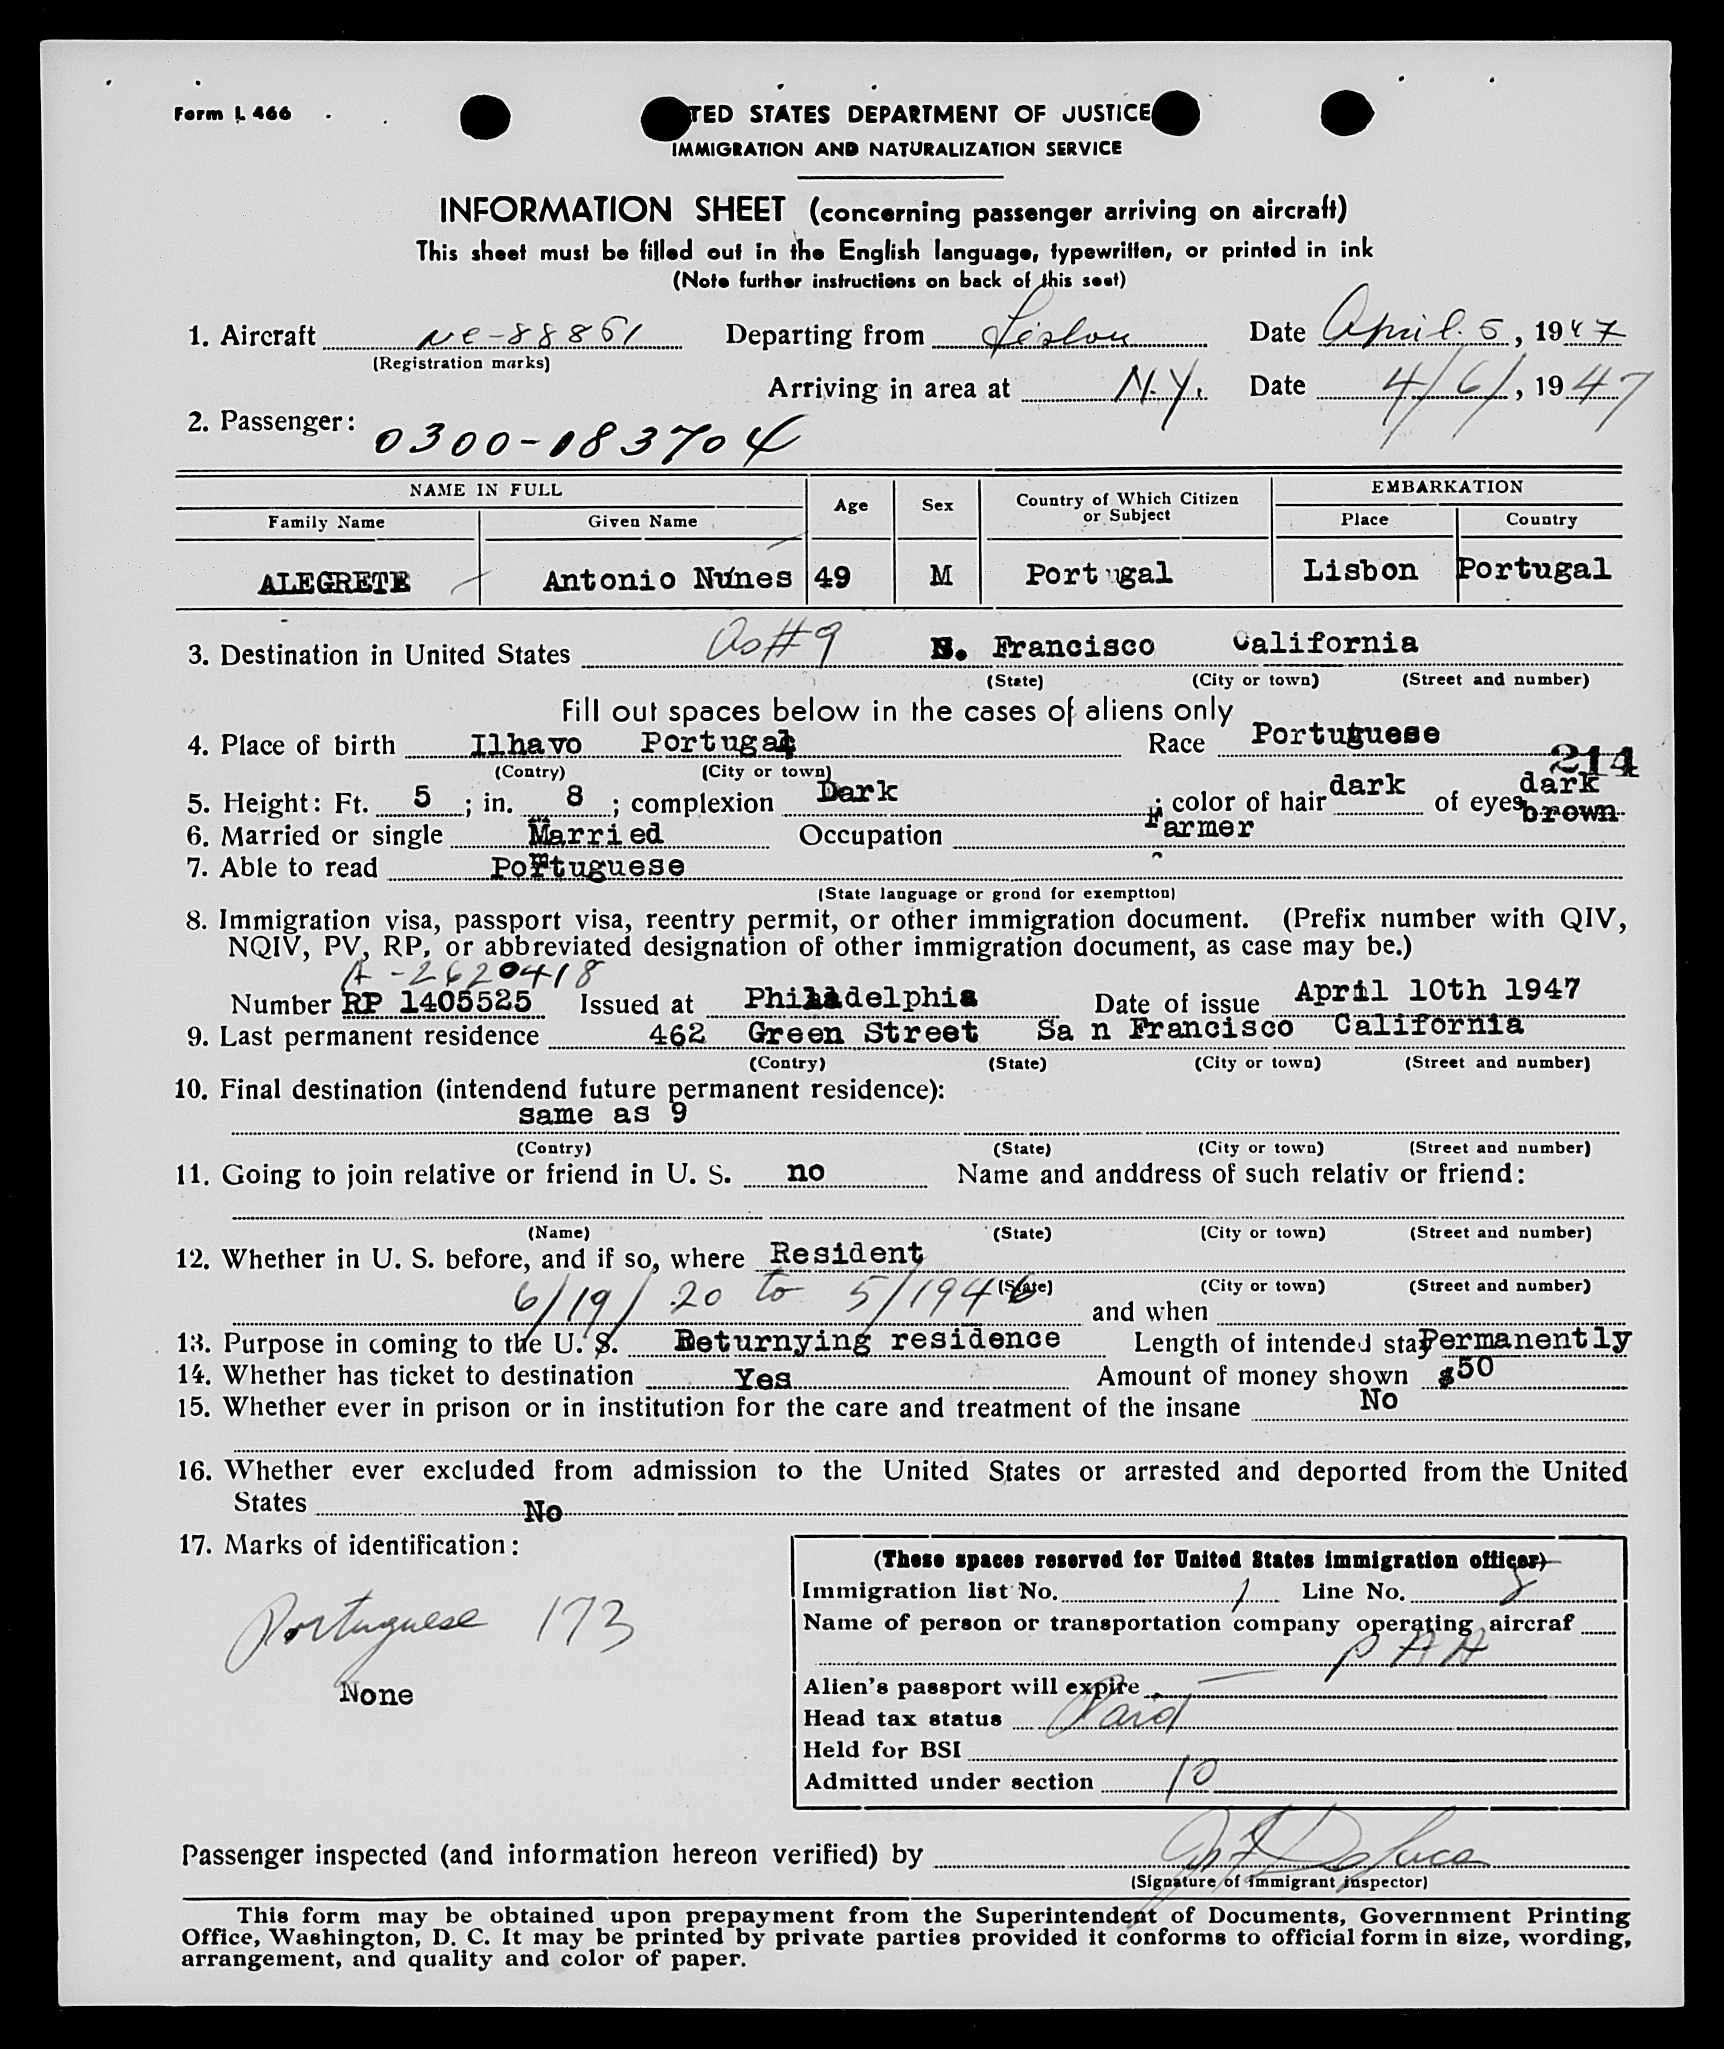 Form I. 466
TED STATES DEPARTMENT OF JUSTICE
IMMIGRATION AND NATURALIZATION SERVICE
INFORMATION SHEET (concerning passenger arriving on aircraft)
This sheet must be filled out in the English language, typewritten, or printed in ink
(Note further instructions on back of this seet)
1. Aircraft NC-88861 Departing from Lisbon Date April. 5, 1947
(Registration marks)
Arriving in area at N.Y. Date 4/6/, 1947
2. Passenger: 0300-183704
NAME IN FULL Age Sex Country of Which Citizen or Subject EMBARKATION
Family Name Given Name Place Country
ALEGRETE Antonio Nunes 49 M Portugal Lisbon Portugal
3. Destination in United States As#9 S. Francisco California
(State) (City or town) (Street and number)
Fill out spaces below in the cases of aliens only
4. Place of birth Ilhavo Portugal Race Portuguese
(Contry) (City or town)
214
5. Height: Ft. 5; in. 8; complexion Dark; color of hair dark of eyes dark brown
6. Married or single Married Occupation Farmer
7. Able to read Portuguese
(State language or grond for exemptton)
8. Immigration visa, passport visa, reentry permit, or other immigration document. (Prefix number with QIV,
NQIV, PV, RP, or abbreviated designation of other immigration document, as case may be.)
A-2620418
Number RP 1405525 Issued at Philadelphia Date of issue April 10th 1947
9. Last permanent residence 462 Green Street Sa n Francisco California
(Contry) (State) (City or town) (Street and number)
10. Final destination (intendend future permanent residence):
same as 9
(Contry) (State) (City or town) (Street and number)
11. Going to join relative or friend in U. S. no Name and anddress of such relativ or friend:
(Name) (State) (City or town) (Street and number)
12. Whether in U. S. before, and if so, where Resident
(State) (City or town) (Street and number)
6/19/20 to 5/1946 and when
13. Purpose in coming to the U. S. Returnying residence Length of intended stay Permanently
14. Whether has ticket to destination Yes Amount of money shown $50
15. Whether ever in prison or in institution for the care and treatment of the insane No
16. Whether ever excluded from admission to the United States or arrested and deported from the United
States No
17. Marks of identification:
Portuguese 173
None
(These spaces reserved for United States immigration officer)
Immigration list No. 1 Line No. 8
Name of person or transportation company operating aircraf
PAA
Alien's passport will expire
Head tax status Paid
Held for BSI
Admitted under section 10
Passenger inspected (and information hereon verified) by
(Signature of immigrant inspector)
This form may be obtained upon prepayment from the Superintendent of Documents, Government Printing
Office, Washington, D. C. It may be printed by private parties provided it conforms to official form in size, wording,
arrangement, and quality and color of paper.